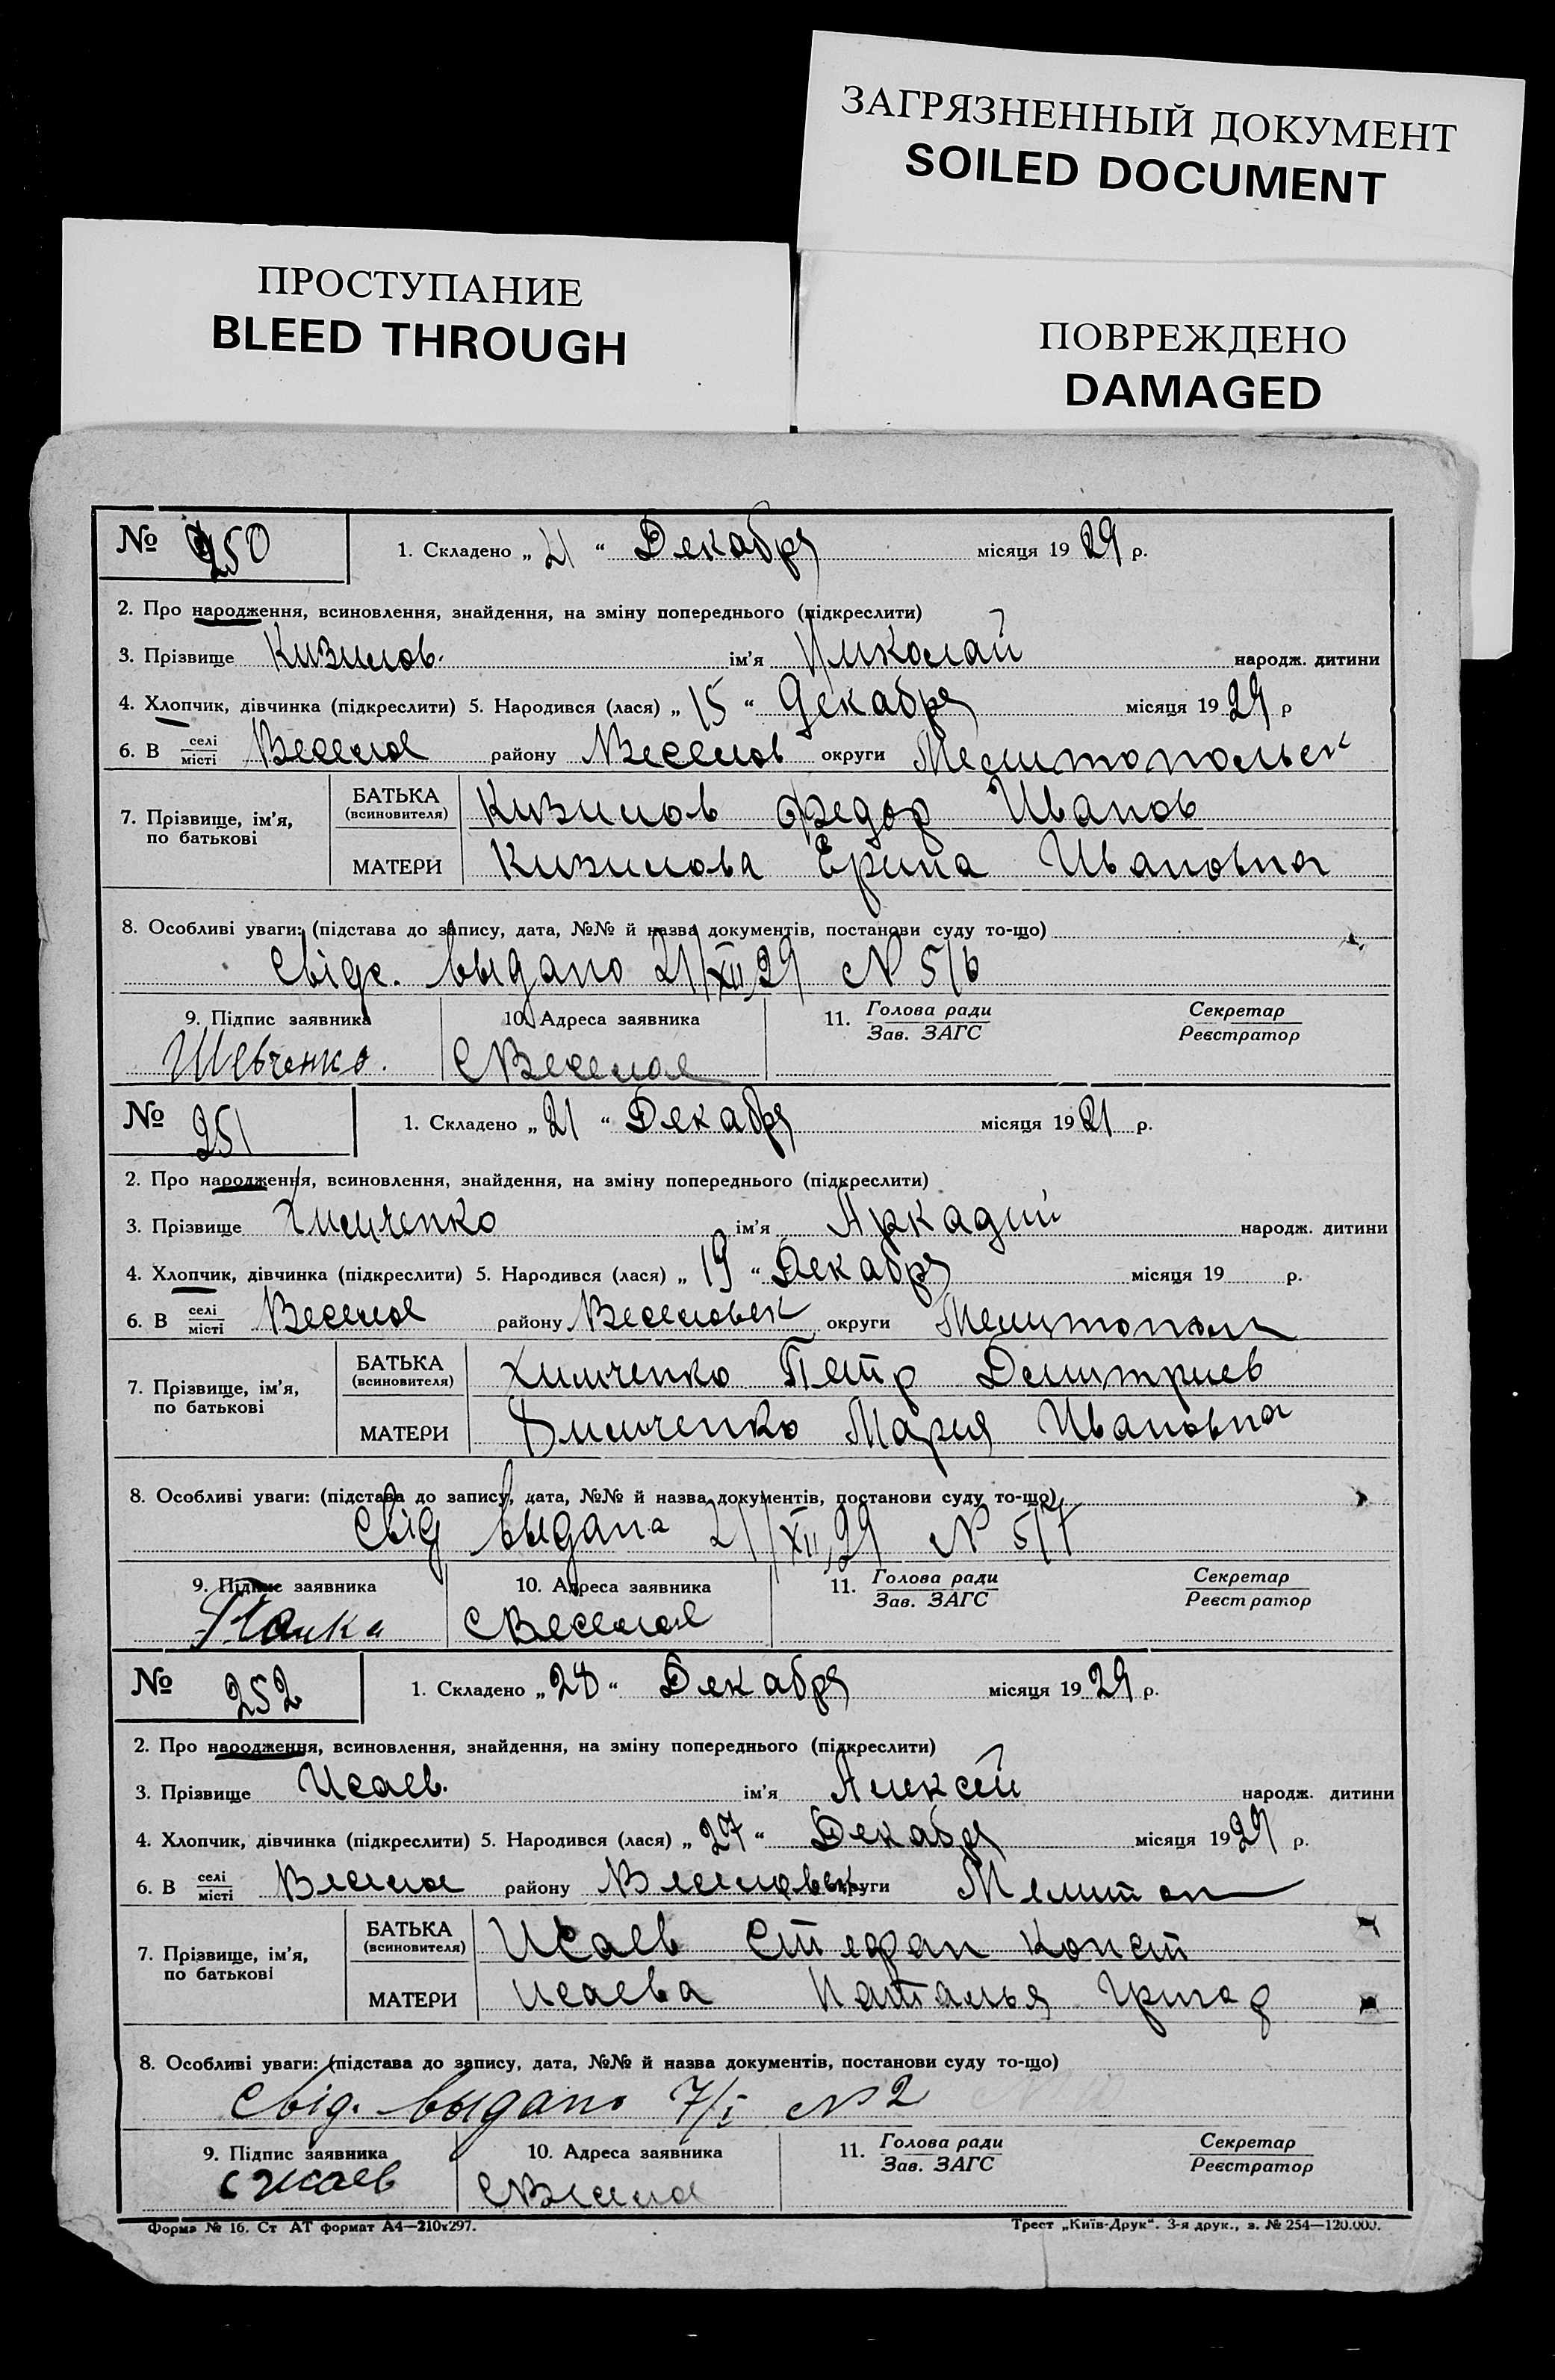 ЗАГРЯЗНЕННЫЙ ДОКУМЕНТ
SOILED DOCUMENT
ПРОСТУПАНИЕ
BLEED THROUGH
ПОВРЕЖДЕНО
DAMAGED
№ 250 1. Складено „ 21 “ Декабря місяця 19 29 р.
2. Про народження, всиновлення, знайдення, на зміну попереднього (підкреслити)
3. Прізвище Кизилов. ім'я Николай народж. дитини
4. Хлопчик, дівчинка (підкреслити) 5. Народився (лася) „ 15 “ Декабря місяця 19 29 р
6. В селі місті Веселое району Веселов округи Мелитопольск
7. Прізвище, ім'я, по батькові БАТЬКА (всиновителя) Кизилов Федор Иванов
МАТЕРИ Кизилова Ерина Ивановна
8. Особливі уваги: (підстава до запису, дата, №№ й назва документів, постанови суду то-що)
Свідс. выдано 21/XII 29 N 516
9. Підпис заявника 10. Адреса заявника 11. Голова ради Зав. ЗАГС Секретар Реєстратор
Шевченко. С Веселое
№ 251 1. Складено „ 21 “ Декабря місяця 19 21 р.
2. Про народження, всиновлення, знайдення, на зміну попереднього (підкреслити)
3. Прізвище Химченко ім'я Аркадий народж. дитини
4. Хлопчик, дівчинка (підкреслити) 5. Народився (лася) „ 19 “ Декабря місяця 19 р.
6. В селі місті Веселое району Веселовск округи
7. Прізвище, ім'я, по батькові БАТЬКА (всиновителя) Химченко Петр Демитриев
МАТЕРИ Мария Ивановна
8. Особливі уваги: (підстава до запису, дата, №№ й назва документів, постанови суду то-що)
Свід выдана 21/XII 29 N 517
9. Підпис заявника 10. Адреса заявника 11. Голова ради Зав. ЗАГС Секретар Реєстратор
С Веселое
№ 252 1. Складено „ 28 “ Декабря місяця 19 29 р.
2. Про народження, всиновлення, знайдення, на зміну попереднього (підкреслити)
3. Прізвище Исаев. ім'я Алексей народж. дитини
4. Хлопчик, дівчинка (підкреслити) 5. Народився (лася) „ 27 “ Декабря місяця 19 29 р.
6. В селі місті Веселое району Веселовск округи Мелитоп
7. Прізвище, ім'я, по батькові БАТЬКА (всиновителя) Исаев Стефан Конст
МАТЕРИ Исаева Наталья Григор
8. Особливі уваги: (підстава до запису, дата, №№ й назва документів, постанови суду то-що)
Свід. выдано 7/I N 2
9. Підпис заявника 10. Адреса заявника 11. Голова ради Зав. ЗАГС Секретар Реєстратор
С Исаев С Веселое
Форма № 16. Ст АТ формат А4—210х297. Трест „Київ-Друк“. 3-я друк., з. № 254—120.000.